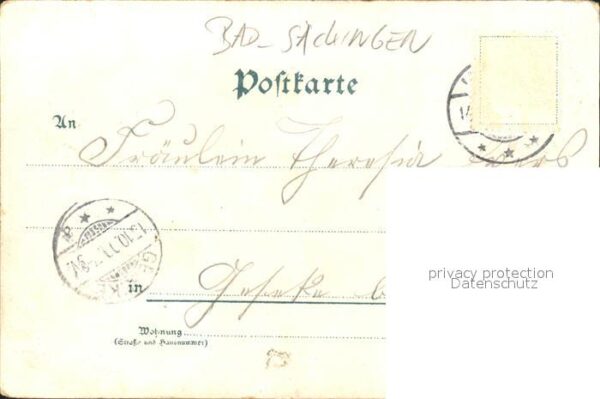 BAD-SÄCKINGEN
Postkarte
An
Fräulein Theresia
privacy protection
Datenschutz
in Geseke
Wohnung
(Straße und Hausnummer)